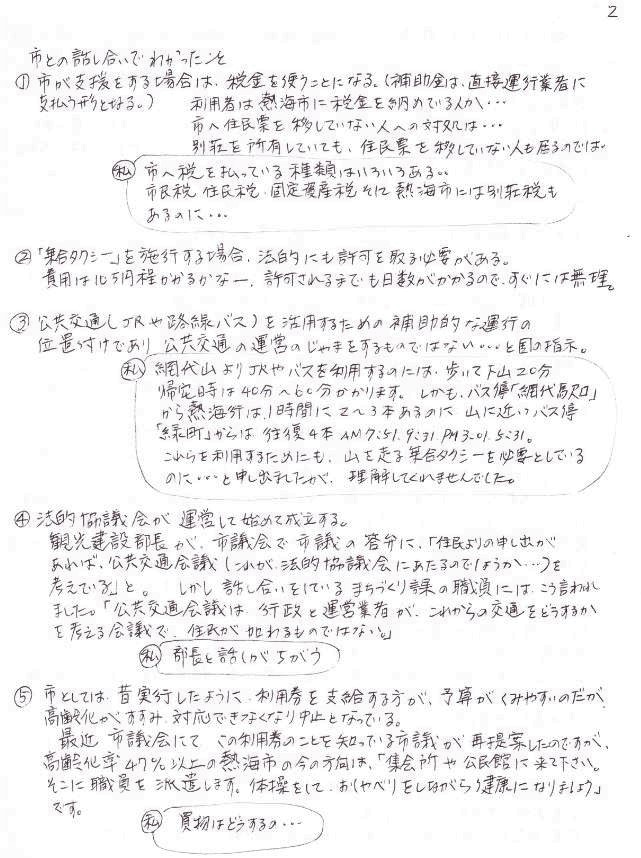 2
市との話し合いでわかったこと
① 市が支援をする場合は、税金を使うことになる。(補助金は、直接運行業者に
支払う形となる。) 利用者は熱海市に税金を納めている人か・・・
市へ住民票を移していない人への対処は・・・
別荘を所有していても、住民票を移していない人も居るのでは。
私 市へ税を払っている種類はいろいろある。。
市民税 住民税 固定資産税 そして熱海市には別荘税も
あるのに・・・
② 「集合タクシー」を施行する場合、法的にも許可を取る必要がある。
費用は10万円程かかるかなー、許可されるまでも日数がかかるので、すぐには無理。
③ 公共交通(JRや路線バス)を活用するための補助的な運行の
位置付けであり 公共交通の運営のじゃまをするものではない・・・と国の指示。
私 網代山よりJRやバスを利用するのには、歩いて下山20分
帰宅時は40分~60分かかります。しかも、バス停「網代駅口」
から熱海行は、1時間に2~3本あるのに 山に近いバス停
「緑町」からは 往復4本 AM7:51. 9:31. PM3:01. 5:31.
これらを利用するためにも、山を走る集合タクシーを必要としている
のに・・・と申し出ましたが、理解してくれませんでした。
④ 法的協議会が運営して始めて成立する。
観光建設部長が、市議会で市議の答弁に、「住民よりの申し出が
あれば、公共交通会議(これが、法的協議会にあたるのでしょうか・・・)を
考えている」と。 しかし話し合いをしているまちづくり課の職員には、こう言われ
ました。「公共交通会議は、行政と運営業者が、これからの交通をどうするか
を考える会議で、住民が加わるものではない。」
私 部長と話しがちがう
⑤ 市としては、昔実行したように、利用券を支給する方が、予算がくみやすいのだが、
高齢化がすすみ、対応できなくなり中止となっている。
最近 市議会にて この利用券のことを知っている市議が再提案したのですが、
高齢化率47%以上の熱海市の今の方向は、「集会所や公民館に来て下さい。
そこに職員を派遣します。体操をして、おしゃべりをしながら健康になりましょう」
です。
私 買物はどうするの・・・